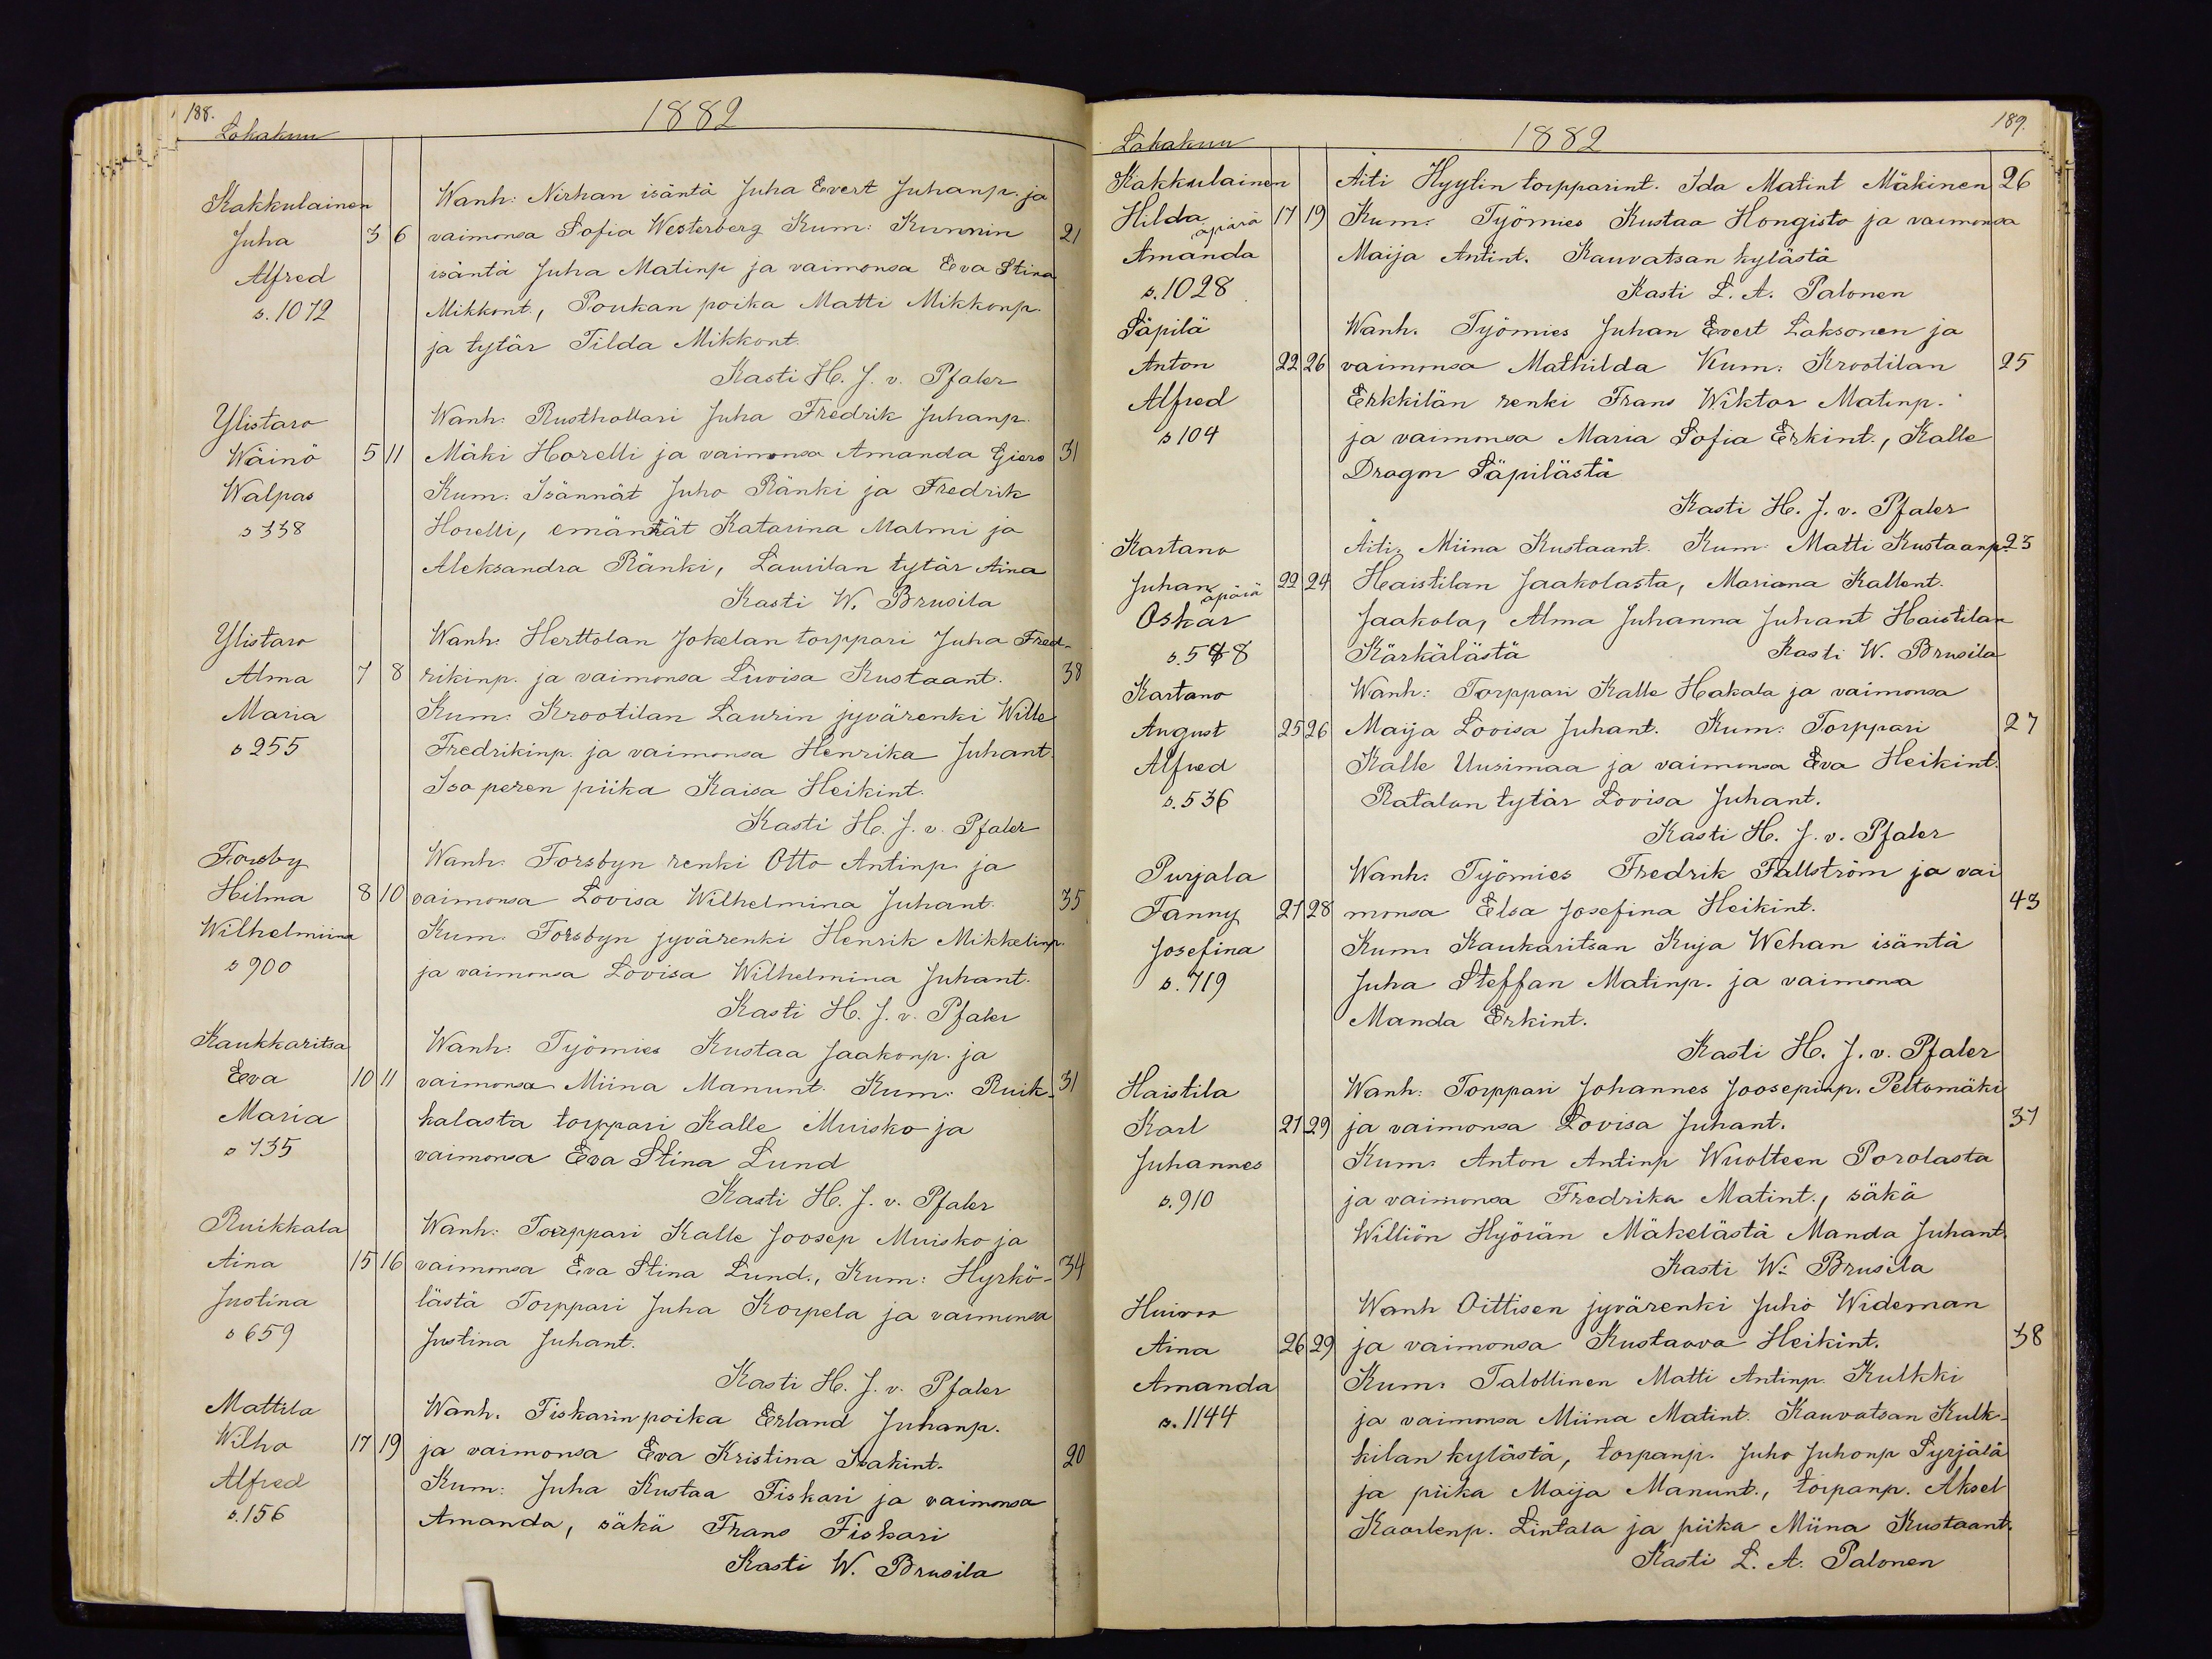 188.
Lokakuu
1882
Kakkulainen
Wanh: Nirhan isäntä Juha Evert Juhanp. ja
Juha 3 6 vaimonsa Sofia Westerberg Kum: Kunnin 21
Alfred isäntä Juha Matinp ja vaimonsa Eva Stina
s. 1072 Mikkont., Poukan poika Matti Mikkonp.
ja tytär Tilda Mikkont.
Kasti H. J. v. Pfaler
Ylistaro Wanh: Rusthollari Juha Fredrik Juhanp.
Wäinö 5 11 Mäki Horelli ja vaimonsa Amanda Giers 31
Walpas Kum. Isännät Juho Ränki ja Fredrik
s 338 Horelli, emännät Katarina Malmi ja
Aleksandra Ränki, Laurilan tytär Aina
Kasti W. Brusila
Ylistaro Wanh: Herttolan Jokelan torppari Juha Fred-
Alma 7 8 rikinp. ja vaimonsa Liwisa Kustaant. 38
Maria Kum. Krootilan Laurin jyvärenki Wille
s 255 Fredrikinp. ja vaimonsa Henrika Juhant.
Iso peren piika Kaisa Heikint.
Kasti H. J. v. Pfaler
Forsby Wanh: Forsbyn renki Otto Antinp. ja
Hilma 8 10 vaimonsa Lovisa Wilhelmina Juhant. 35
Wilhelmiina Kum. Forsbyn jyvärenki Henrik Mikkelinp.
s 900 ja vaimonsa Lovisa Wilhelmina Juhant.
Kasti H. J. v. Pfaler
Kaukkaritsa Wanh: Työmies Kustaa Jaakonp. ja
Eva 10 11 vaimonsa Miina Manunt. Kum: Ruik- 31
Maria kalasta torppari Kalle Muisko ja
s 735 vaimonsa Eva Stina Lund
Kasti H. J. v. Pfaler
Ruikkala Wanh: Torppari Kalle Joosep Muisko ja
Aina 15 16 vaimonsa Eva Stina Lund., Kum: Hyrkö- 34
Justina lästä Torppari Juha Korpela ja vaimonsa
s 659 Justina Juhant.
Kasti H. J. v. Pfaler
Mattila Wanh. Fiskarin poika Erland Juhanp.
Wilho 17 19 ja vaimonsa Eva Kristina Isakint. 20
Alfred Kum: Juha Kustaa Fiskari ja vaimonsa
s. 156 Amanda, säkä Frans Fiskari
Kasti W. Brusila
189.
Lokakuu
1882
Kakkulainen Äiti Hyytin torpparint. Ida Matint Mäkinen 26
Hilda äpärä 17 19 Kum: Työmies Kustaa Hongisto ja vaimonsa
Amanda Maija Antint. Kauvatsan kylästä
s. 1028 Kasti L. A. Palonen
Säpilä Wanh. Työmies Juhan Evert Laksonen ja
Anton 22 26 vaimonsa Mathilda Kum: Krootilan 25
Alfred Erkkilän renki Frans Wiktor Matinp.
s 104 ja vaimonsa Maria Sofia Erkint., Kalle
Dragon Säpilästä
Kasti H. J. v. Pfaler
Kartano Äiti: Miina Kustaant. Kum: Matti Kustaanp. 23
Juhan äpärä 22 24 Haistilan Jaakolasta, Mariana Kallent.
Oskar Jaakola, Alma Juhanna Juhant Haistilan
s. 588 Kärkälästä Kasti W. Brusila
Kartano Wanh: Torppari Kalle Hakala ja vaimonsa
August 25 26 Maija Lovisa Juhant. Kum: Torppari 27
Alfred Kalle Uusimaa ja vaimonsa Eva Heikint.
s. 536 Ratalan tytär Lovisa Juhant.
Kasti H. J. v. Pfaler
Purjala Wanh: Työmies Fredrik Fallström ja vai
Fanny 21 28 monsa Elsa Josefina Heikint. 43
Josefina Kum: Kaukaritsan Kuja Wehan isäntä
s. 719 Juha Steffan Matinp. ja vaimonsa
Manda Erkint.
Kasti H. J. v. Pfaler
Haistila Wanh: Torppari Johannes Joosepinp. Peltomäki
Karl 21 29 ja vaimonsa Lovisa Juhant. 37
Juhannes Kum: Anton Antinp Wuolteen Porolasta
s. 910 ja vaimonsa Fredrika Matint., säkä
Williön Hyörän Mäkelästä Manda Juhant.
Kasti W. Brusila
Wanh Oittisen jyvärenki Juho Wideman
Aina 26 29 ja vaimonsa Kustaava Heikint. 38
Amanda Kum: Talollinen Matti Antinp. Kulkki
s. 1144 ja vaimonsa Miina Matint. Kauvatsan Kulk-
kilan kylästä, torpanp. Juho Juhonp Syrjälä
ja piika Maija Manunt., torpanp. Aksel
Kaarlenp. Lintala ja piika Miina Kustaant.
Kasti L. A. Palonen